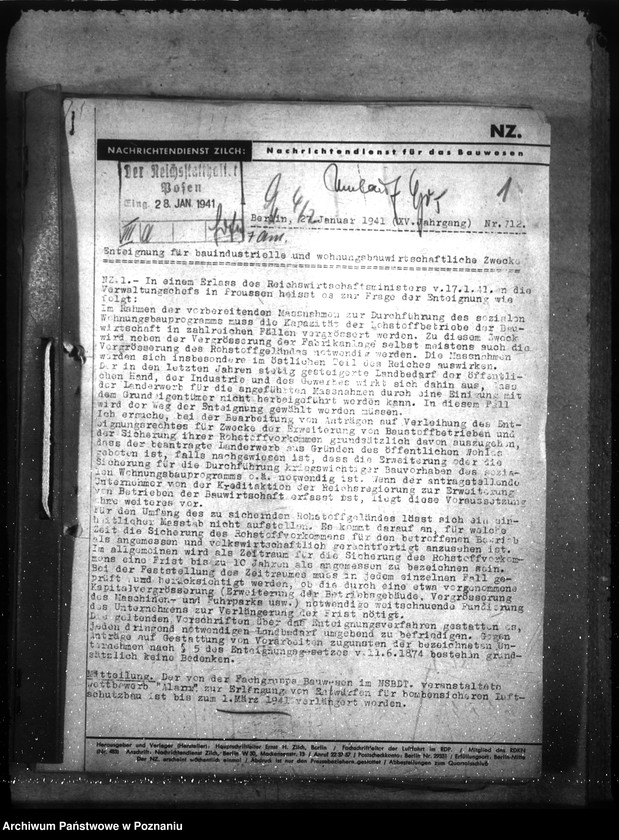 NZ.
NACHRICHTENDIENST ZILCH:
Nachrichtendienst für das Bauwesen
Der Reichsstatthalter
Posen
Eing. 28. JAN. 1941
Umlauf
1
III A
Berlin, 27. Januar 1941 (XV. Jahrgang) Nr. 712.
Enteignung für bauindustrielle und wohnungsbauwirtschaftliche Zwecke
NZ.1.- In einem Erlass des Reichswirtschaftsministers v.17.1.41. an die
Verwaltungschefs in Preussen heisst es zur Frage der Enteignung wie
folgt:
Im Rahmen der vorbereitenden Massnahmen zur Durchführung des sozialen
Wohnungsbauprogramms muss die Kapazität der Rohstoffbetriebe der Bau-
wirtschaft in zahlreichen Fällen vergrössert werden. Zu diesem Zweck
wird neben der Vergrösserung der Fabrikanlage selbst meistens auch die
Vergrösserung des Rohstoffgeländes notwendig werden. Die Massnahmen
werden sich insbesondere im östlichen Teil des Reiches auswirken.
Der in den letzten Jahren stetig gesteigerte Landbedarf der öffentli-
chen Hand, der Industrie und des Gewerbes wirkt sich dahin aus, dass
der Landerwerb für die angeführten Massnahmen durch eine Einigung mit
dem Grundeigentümer nicht herbeigeführt werden kann. In diesem Fall
wird der Weg der Enteignung gewählt werden müssen.
Ich ersuche, bei der Bearbeitung von Anträgen auf Verleihung des Ent-
eignungsrechtes für Zwecke der Erweiterung von Baustoffbetrieben und
der Sicherung ihrer Rohstoffvorkommen grundsätzlich davon auszugehen,
dass der beantragte Landerwerb aus Gründen des öffentlichen Wohles
geboten ist, falls nachgewiesen ist, dass die Erweiterung oder die
Sicherung für die Durchführung kriegswichtiger Bauvorhaben des sozia-
len Wohnungsbauprogramms o.ä. notwendig ist. Wenn der antragstellende
Unternehmer von der Kreditaktion der Reichsregierung zur Erweiterung
von Betrieben der Bauwirtschaft erfasst ist, liegt diese Voraussetzung
ohne weiteres vor.
Für den Umfang des zu sichernden Rohstoffgeländes lässt sich ein ein-
heitlicher Masstab nicht aufstellen. Es kommt darauf an, für welche
Zeit die Sicherung des Rohstoffvorkommens für den betroffenen Betrieb
als angemessen und volkswirtschaftlich gerechtfertigt anzusehen ist.
Im allgemeinen wird als Zeitraum für die Sicherung des Rohstoffvorkom-
mens eine Frist bis zu 10 Jahren als angemessen zu bezeichnen sein.
Bei der Feststellung des Zeitraumes muss in jedem einzelnen Fall ge-
prüft und berücksichtigt werden, ob die durch eine etwa vorgenommene
Kapitalvergrösserung (Erweiterung der Betriebsgebäude, Vergrösserung
des Maschinen- und Fuhrparks usw.) notwendige weitschauende Fundierung
des Unternehmens zur Verlängerung der Frist nötigt.
Die geltenden Vorschriften über das Enteignungsverfahren gestatten es,
jeden dringend notwendigen Landbedarf umgehend zu befriedigen. Gegen
Anträge auf Gestattung von Vorarbeiten zugunsten der bezeichneten Un-
ternehmen nach § 5 des Enteignungsgesetzes v.11.6.1874 bestehen grund-
sätzlich keine Bedenken.
Mitteilung. Der von der Fachgruppe Bauwesen im NSBDT. veranstaltete
Wettbewerb "Alarm" zur Erlangung von Entwürfen für bombensicheren Luft-
schutzbau ist bis zum 1.März 1941 verlängert worden.
Herausgeber und Verleger (Hersteller): Hauptschriftleiter Ernst H. Zilch, Berlin / Fachschriftleiter der Luftfahrt im RDP. / Mitglied des RDEN
Anschrift: Nachrichtendienst Zilch, Berlin W 30, / Erfüllungsort: Berlin-Mitte
Der NZ. erscheint wöchentlich einmal / Abdruck ist nur den Pressebeziehern gestattet / Abbestellungen zum Quartalsschluß
Archiwum Państwowe w Poznaniu